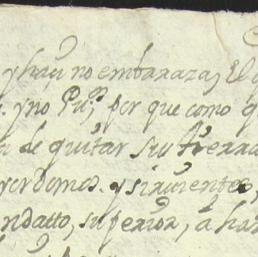 y haci no embarazas, El
y no Pu; por que como q
de quitar su tierra
yordomos. y sirvientes,
ndatto, superior, â haz